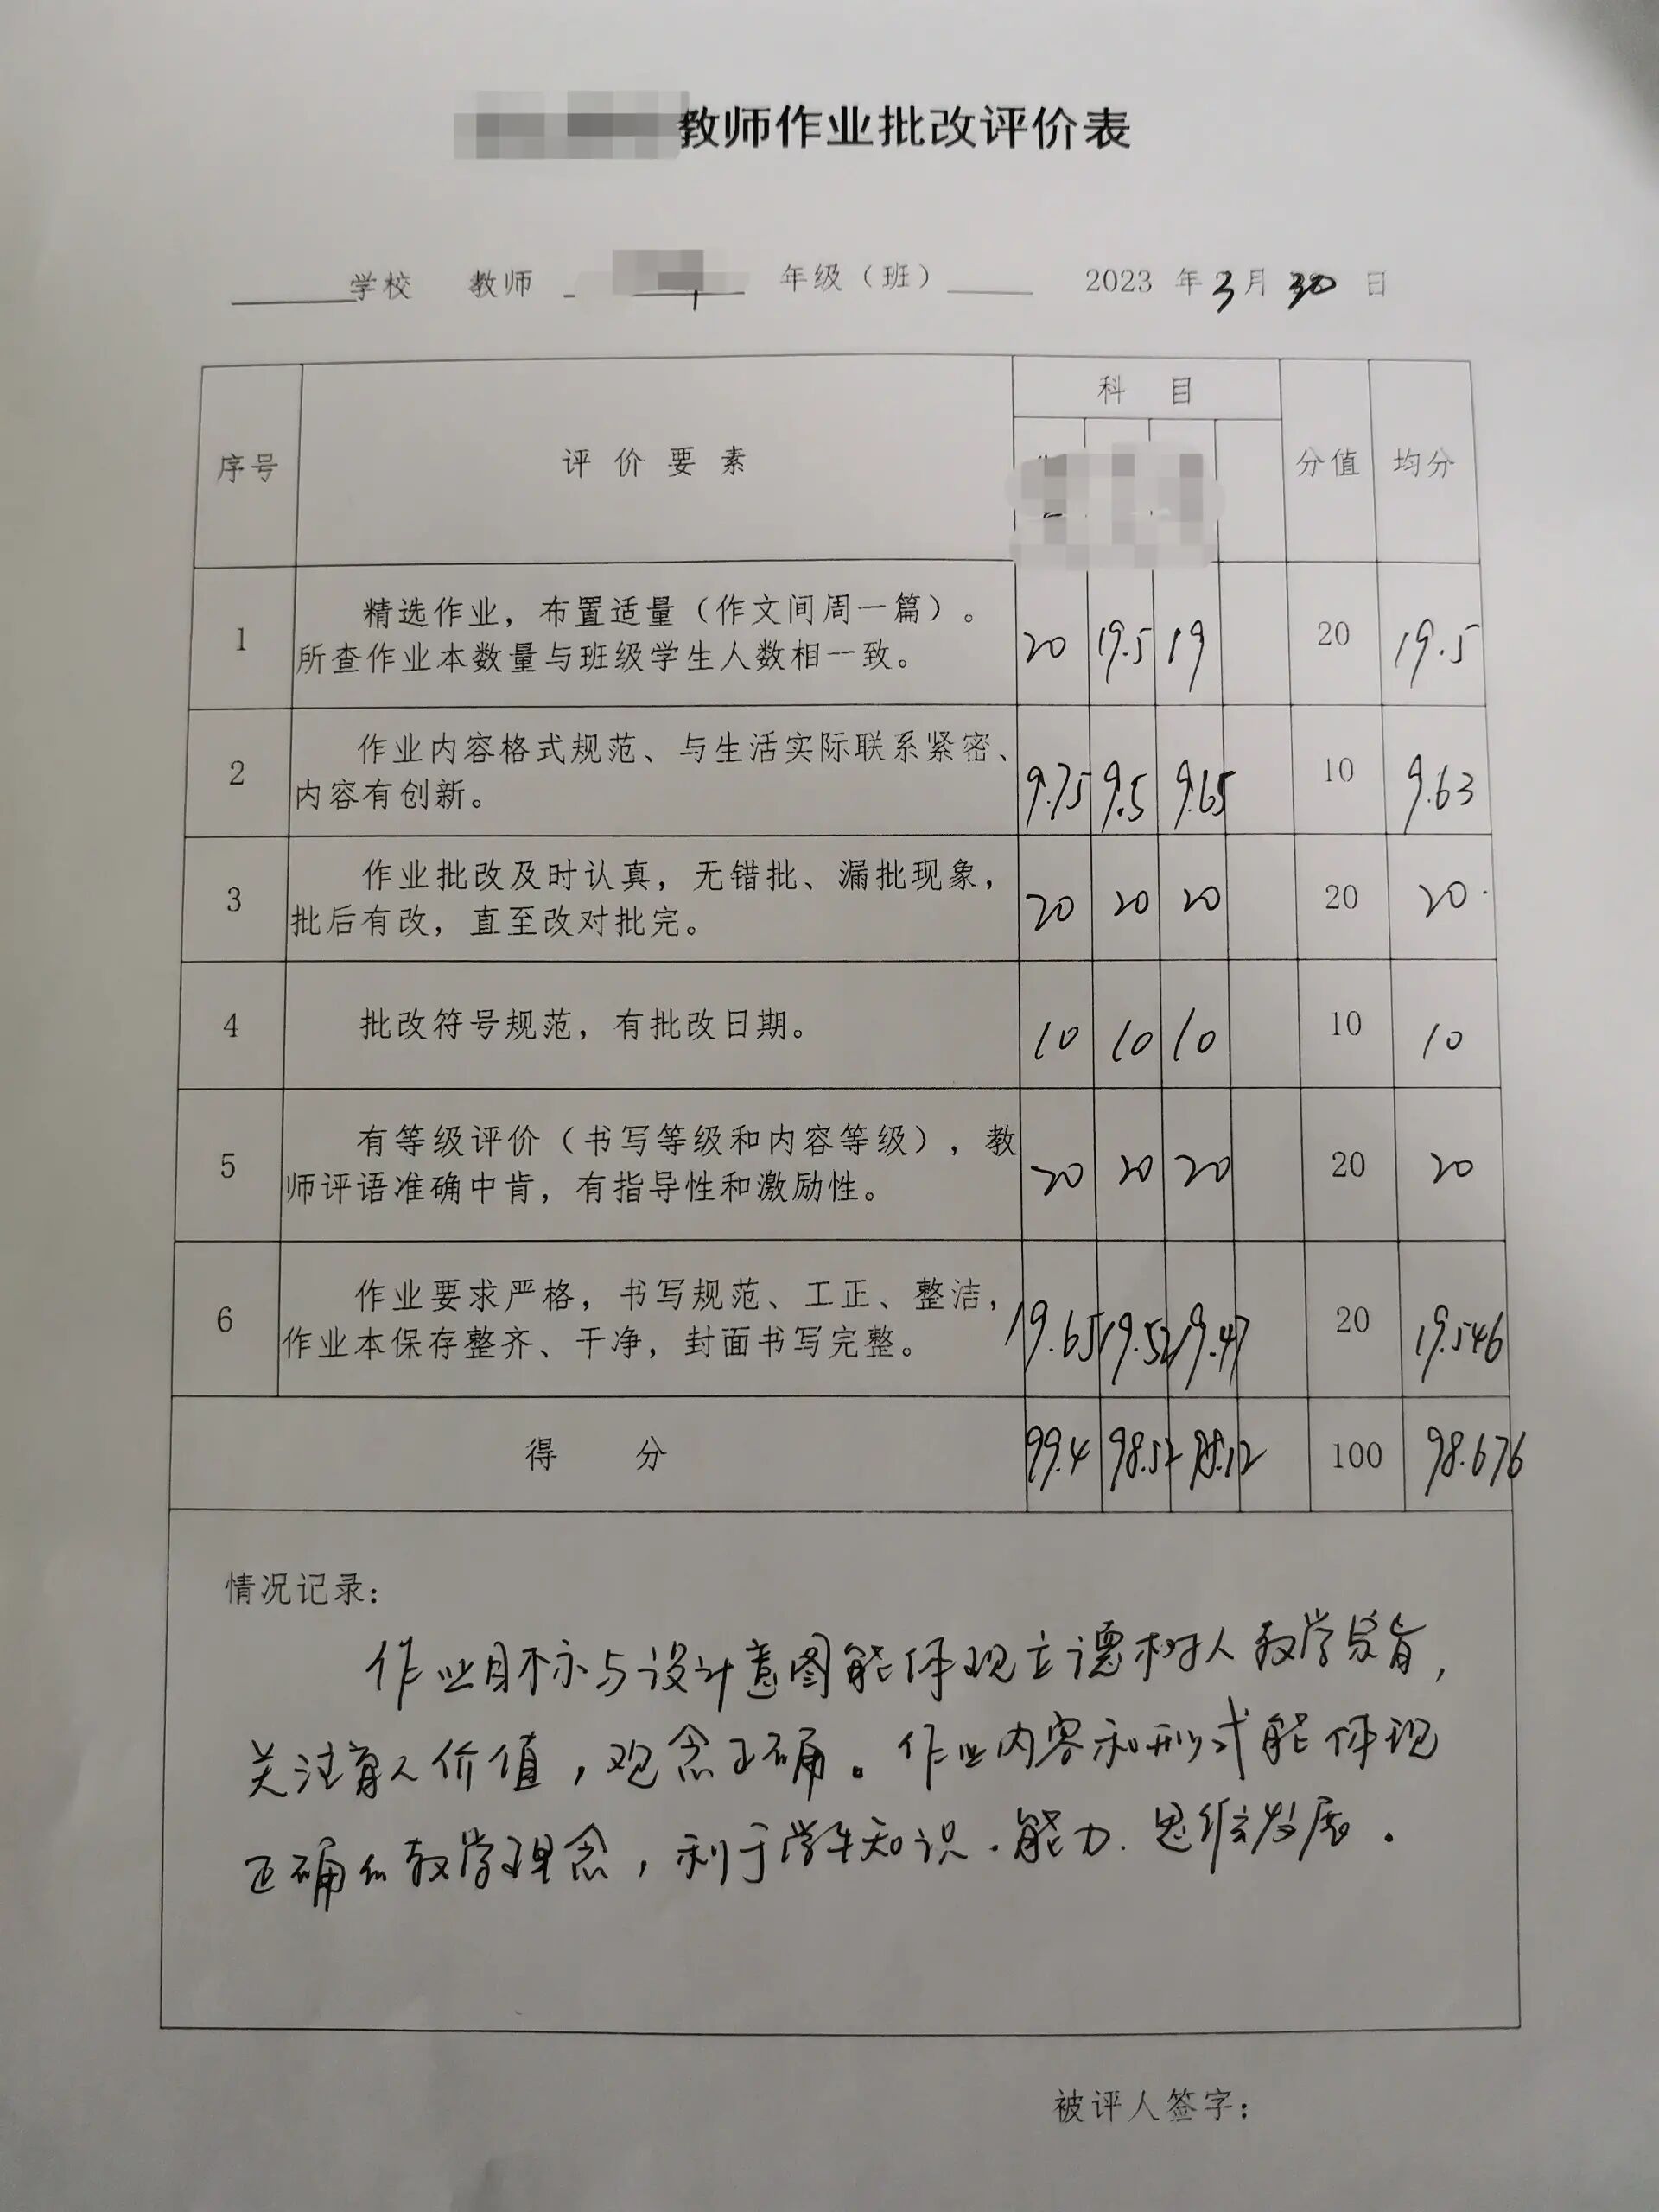 教师作业批改评价表
学校 教师 年级（班） 2023 年 3 月 30 日
序号 评价要素 科目 分值 均分
1 精选作业，布置适量（作文间周一篇）。
所查作业本数量与班级学生人数相一致。 20 19.5 19 20 19.5
2 作业内容格式规范、与生活实际联系紧密、
内容有创新。 9.75 9.5 9.65 10 9.63
3 作业批改及时认真，无错批、漏批现象，
批后有改，直至改对批完。 20 20 20 20 20
4 批改符号规范，有批改日期。 10 10 10 10 10
5 有等级评价（书写等级和内容等级），教
师评语准确中肯，有指导性和激励性。 20 20 20 20 20
6 作业要求严格，书写规范、工正、整洁，
作业本保存整齐、干净，封面书写完整。 19.65 19.52 19.47 20 19.546
得分 99.4 98.52 98.12 100 98.676
情况记录：
作业目标与设计意图能体现立德树人教学宗旨，
关注育人价值，观念正确。作业内容和形式能体现
正确的教学理念，利于学生知识、能力、思维发展。
被评人签字：